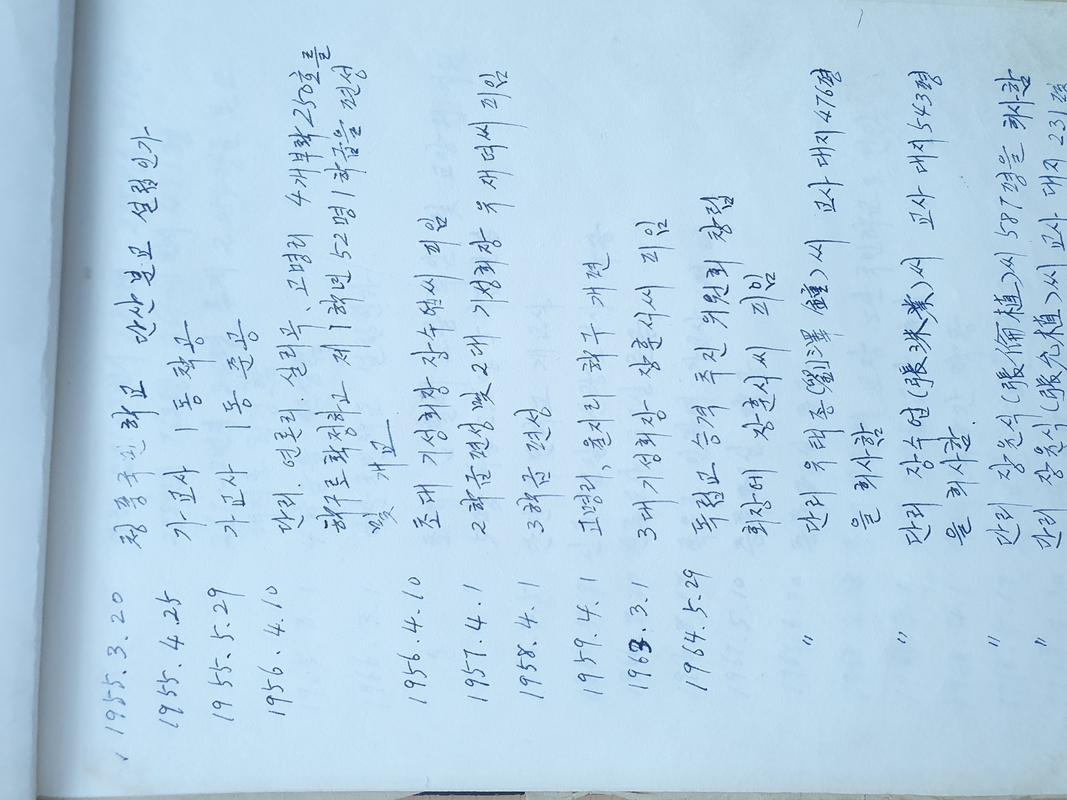 1955.3.20 청풍국민학교 단산분교 설립인가
1955.4.25 가교사 1동 착공
1955.5.29 가교사 1동 준공
1956.4.10 단리. 연론리. 실리곡. 고명리 4개부락 250호를
학구로 확정하고 제1학년 52명 1학급을 편성
및 개교
1956.4.10 초대 기성회장 장수현씨 피임
1957.4.1 2학급편성 및 2대 기성회장 우재덕씨 피임
1958.4.1 3학급 편성
1959.4.1 고명리, 율지리 학구 개편
1963.3.1 3대 기성회장 장훈식씨 피임
1964.5.29 독립교 승격 추진 위원회 창립
회장에 장훈식씨 피임
〃 단리 유택종(劉澤鍾)씨 교사 대지 476평
을 희사함
〃 단리 장수업(張洙業)씨 교사 대지 543평
을 희사함.
〃 단리 장윤식(張倫植)씨 587평을 희사함
〃 단리 장윤식(張允植)씨 교사 대지 231평